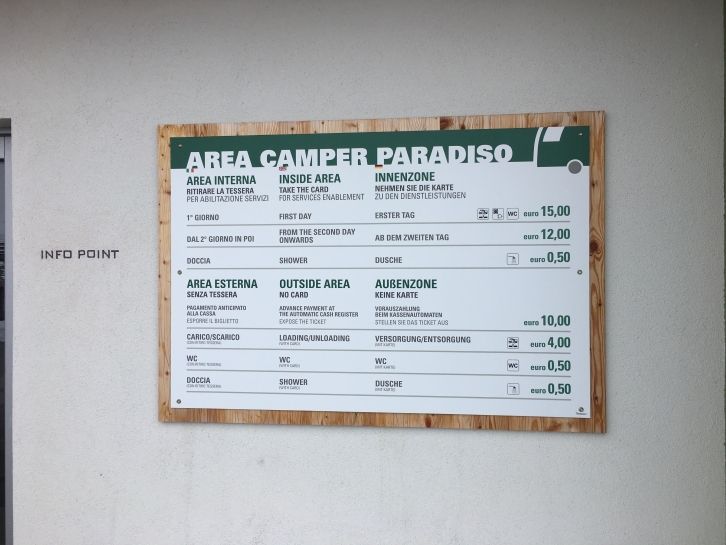 INFO POINT
AREA CAMPER PARADISO
AREA INTERNA INSIDE AREA INNENZONE
RITIRARE LA TESSERA TAKE THE CARD NEHMEN SIE DIE KARTE
PER ABILITAZIONE SERVIZI FOR SERVICES ENABLEMENT ZU DEN DIENSTLEITUNGEN
1° GIORNO FIRST DAY ERSTER TAG WC euro 15,00
DAL 2° GIORNO IN POI FROM THE SECOND DAY ONWARDS AB DEM ZWEITEN TAG euro 12,00
DOCCIA SHOWER DUSCHE euro 0,50
AREA ESTERNA OUTSIDE AREA AUßENZONE
SENZA TESSERA NO CARD KEINE KARTE
PAGAMENTO ANTICIPATO ADVANCE PAYMENT AT VORAUSZAHLUNG
ALLA CASSA THE AUTOMATIC CASH REGISTER BEIM KASSENAUTOMATEN
ESPORRE IL BIGLIETTO EXPOSE THE TICKET STELLEN SIE DAS TICKET AUS euro 10,00
CARICO/SCARICO LOADING/UNLOADING VERSORGUNG/ENTSORGUNG euro 4,00
(CON RITIRO TESSERA) (WITH CARD) (MIT KARTE)
WC WC WC WC euro 0,50
(CON RITIRO TESSERA) (WITH CARD) (MIT KARTE)
DOCCIA SHOWER DUSCHE euro 0,50
(CON RITIRO TESSERA) (WITH CARD) (MIT KARTE)